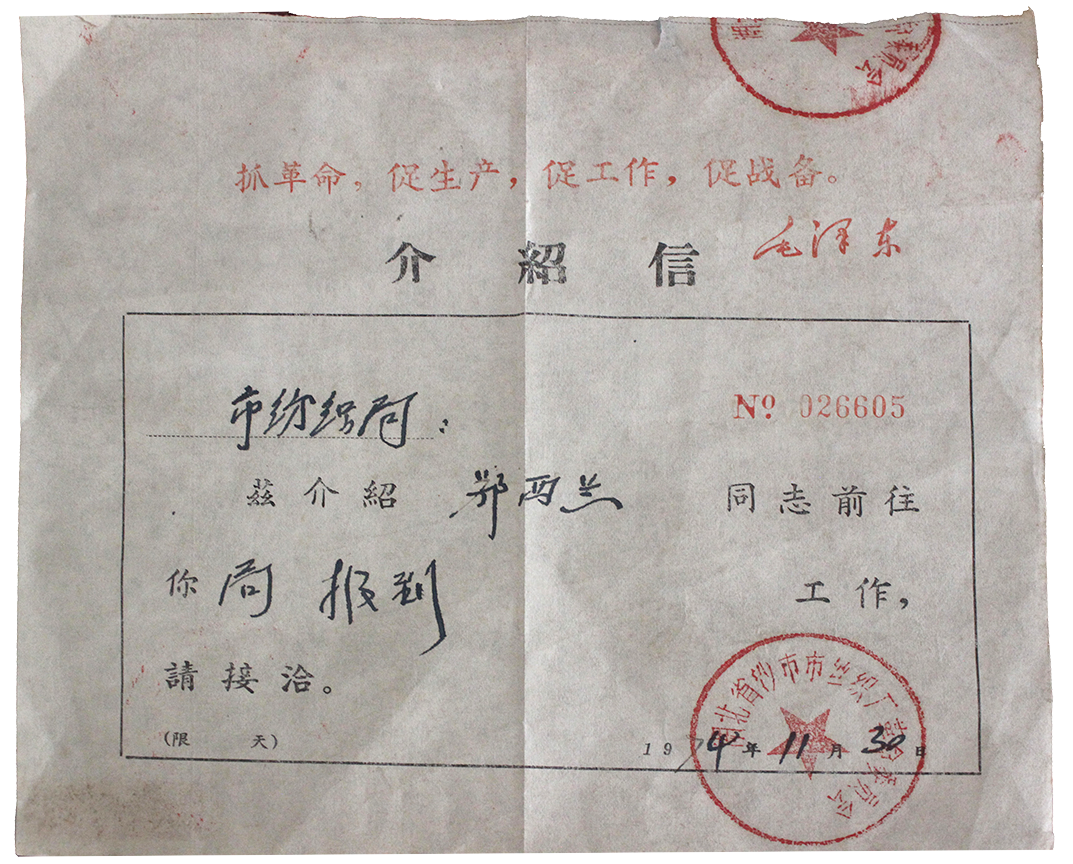 委员会
抓革命，促生产，促工作，促战备。
毛泽东
介紹信
№ 026605
市纺织局：
茲介紹 鄂西兰 同志前往
你局 报到 工作，
請接洽。
(限 天)
1974年11月30日
湖北省沙市市丝织厂革命委员会